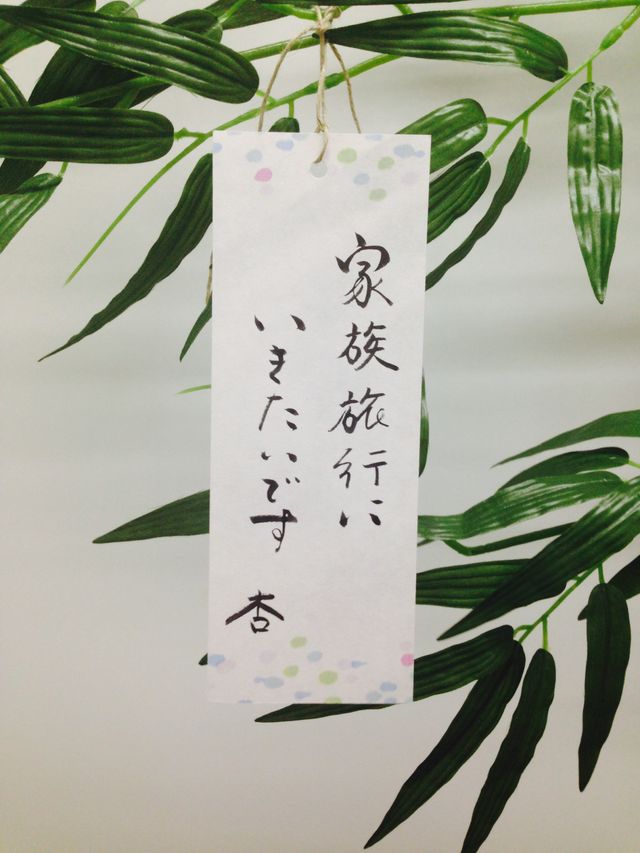 家族旅行に
いきたいです 杏